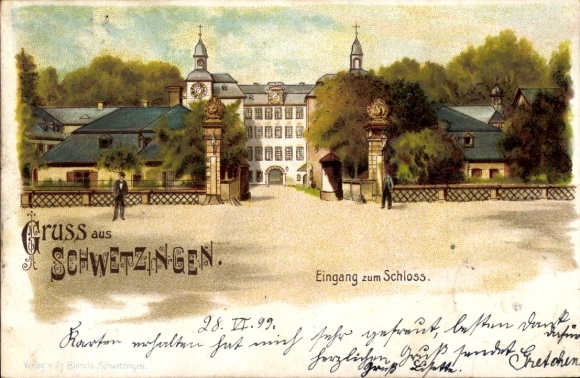 Gruss aus
SCHWETZINGEN.
Eingang zum Schloss.
28. VI. 99.
Karten erhalten hat mich sehr gefreut, besten Dank
dafür
herzlichen Gruß sendet Gretchen
Gruß Lisette.
Verlag v. Schwetzingen.